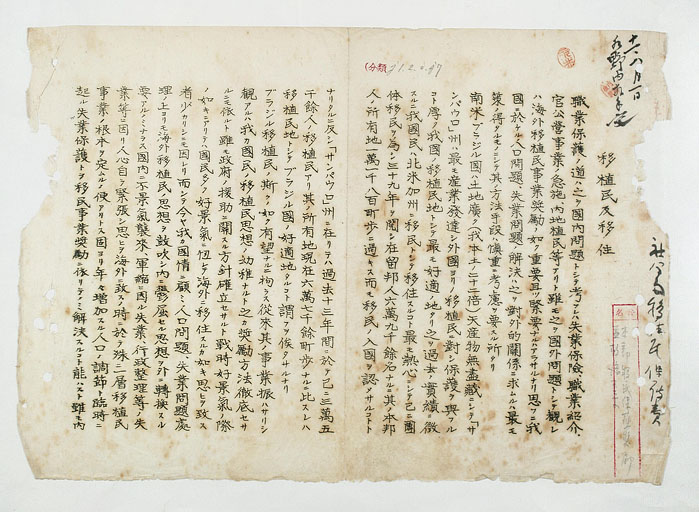 移植民及移住
職業保護ノ道ハ之ヲ国内問題トシテ考フレハ失業保険、職業紹介、
官公営事業ノ急施、内地植民等アリト雖モ之ヲ国外問題トシテ観レ
ハ海外移植民事業奨励ノ如キ重要且ツ緊要ナルハアラサルナリ思フニ我
国ニ於ケル人口問題、失業問題ノ解決ハ一ツニ対外的関係ニ求ムルハ最モ
策ノ得タルモノニシテ其方法手段ハ慎重ニ考慮ヲ要スル所ナリ
南米ブラジル国ハ土地広ク(我本土ノ二十二倍)天産物無尽蔵ニシテ「サ
ンパウロ」州ハ最モ産業発達シ外国ヨリノ移植民ニ対シ保護ヲ与フル
コト厚ク我国ノ移植民地トシテ最モ好適地タリ之ヲ過去ノ実績ニ徴
スルニ我国民ハ北米加州ニ移民トシテ移住スルコト最モ熱心ニシテ已ニ団
体移民ヲ為シ三十九年ヲ閲シ在留邦人六万九千余名ナルニ其本邦
人ノ所有地一万一千八百町歩ニ過キス而モ移民ノ入国ヲ認メサルコトト
ナリタルニ反シ「サンパウロ」州ニ在リテハ過去十三年間ニ於テ已ニ三万五
千余人ノ移植民アリ其所有地現在六万七千余町歩ナルニ比スレハ
移植民地トシテブラジル国ノ好適地タルコト謂フヲ俟タサルナリ
ブラジル移植民ノ斯クノ如ク有望ナルニ拘ラス従来其事業振ハサリシ
観アルハ我カ国民ノ移植民思想ノ幼稚ナルト之カ奨励方法徹底セサ
ルニ依ルト雖モ政府ノ援助ニ関スル方針確立セサルト戦時好景気ノ際
ノ如キニアリテハ国民多クノ好景気ニ忸レテ海外ニ移住スルカ如キ思ヒヲ致ス
者少カリシニ因レリ而シテ今ヤ我カ国情ニ顧ミ人口問題、失業問題処
理ノ上ヨリ海外移植民ノ思想ヲ鼓吹シ内ニ鬱屈セル思想ヲ外ニ転換スル
要アルノミナラス国内不景気襲来、軍縮ニ因ル失業、行政整理等ノ失
業等ニ因リ人心自ラ緊張シ思ヒヲ海外ニ致スノ時ニ於テ殊ニ一層移植民
事業ノ根本ヲ定ムルノ便アリトス因ヨリ年々増加スル人口ノ調節ト臨時ニ
起ル失業保護トヲ移民事業奨励ニ依リテノミ解決スルコト能ハスト雖モ内